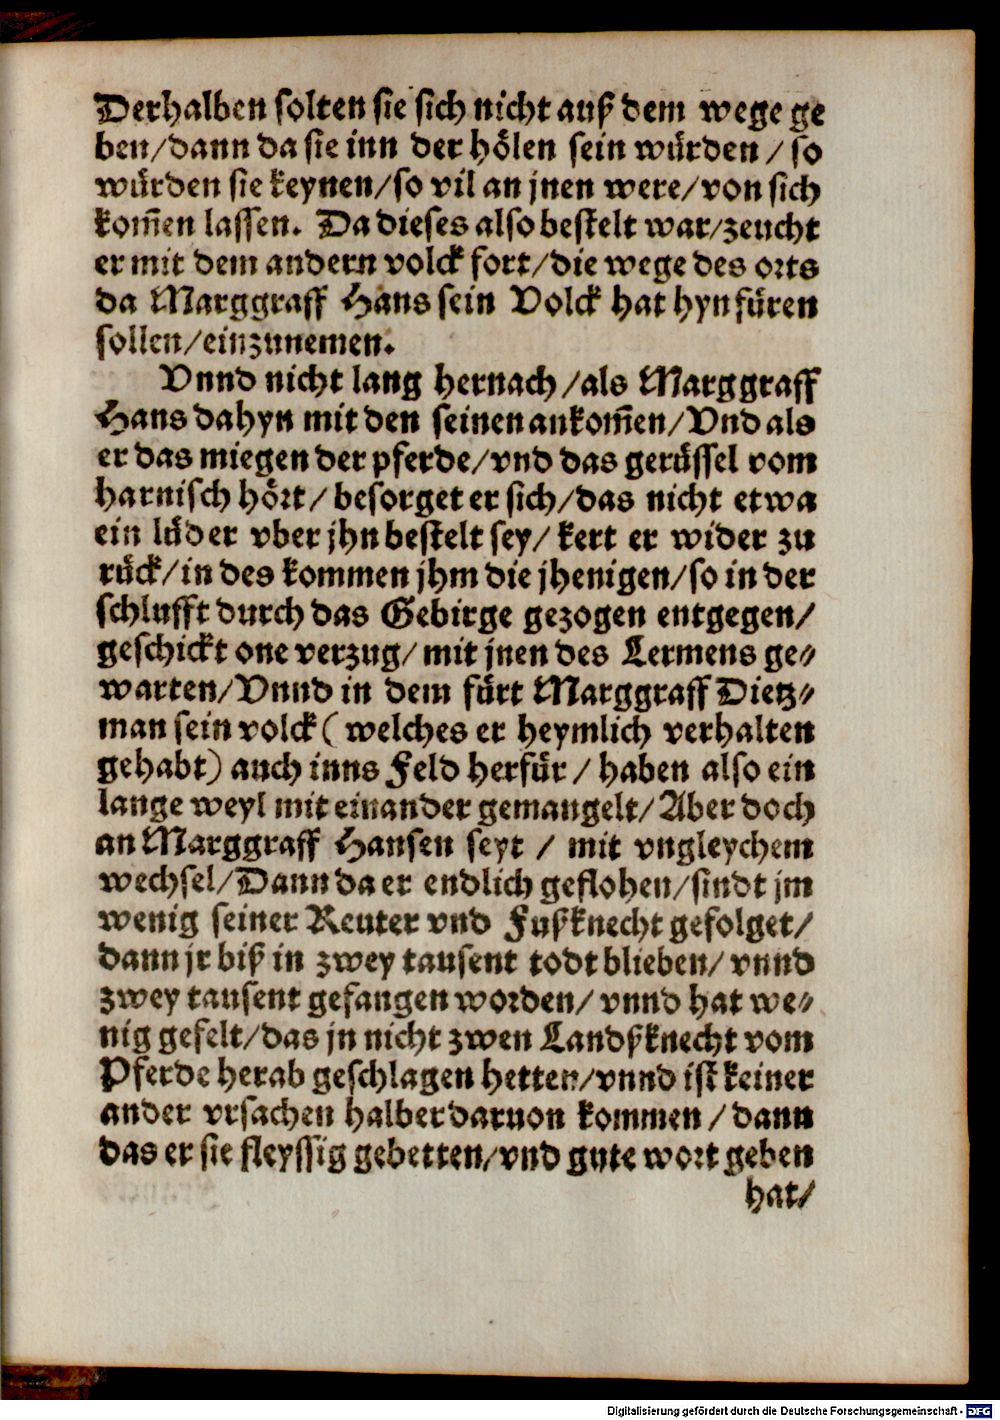 Derhalben solten sie sich nicht auß dem wege ge
ben/dann da sie inn der hölen sein würden / so
würden sie keynen/so vil an jnen were/von sich
kom̃en lassen. Da dieses also bestelt war/zeucht
er mit dem andern volck fort/die wege des orts
da Marggraff Hans sein Volck hat hyn füren
sollen/einzunemen.
Vnnd nicht lang hernach/als Marggraff
Hans dahyn mit den seinen ankom̃en/Vnd als
er das miegen der pferde/vnd das gerüssel vom
harnisch hört/ besorget er sich/das nicht etwa
ein lüder vber jhn bestelt sey/ kert er wider zu
rück/in des kommen jhm die jhenigen/so in der
schlufft durch das Gebirge gezogen entgegen/
geschickt one verzug/ mit jnen des Lermens ge⸗
warten/Vnnd in dem fürt Marggraff Dietz⸗
man sein volck ( welches er heymlich verhalten
gehabt) auch inns Feld herfür / haben also ein
lange weyl mit einander gemangelt/Aber doch
an Marggraff Hansen seyt / mit vngleychem
wechsel/Dann da er endlich geflohen/sindt jm
wenig seiner Reuter vnd Fußknecht gefolget/
dann jr biß in zwey tausent todt blieben/ vnnd
zwey tausent gefangen worden/ vnnd hat we⸗
nig gefelt/das jn nicht zwen Landßknecht vom
Pferde herab geschlagen hetten/vnnd ist keiner
ander vrsachen halber daruon kommen / dann
das er sie fleyssig gebetten/vnd gute wort geben
hat/
Digitalisierung gefördert durch die Deutsche Forschungsgemeinschaft - DFG